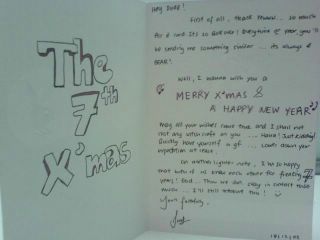 The
7th
X'mas
Hey Dude!
First of all, thank youuuu... so much
for d card. Its so awesome! Everytime of year, you'll
be sending me something similar ... its always a
BEAR!
Well, I wanna wish you a
MERRY X'MAS &
A HAPPY NEW YEAR
May all your wishes come true and I shall not
not any wish on you ... Haha! Just kidding!
Quickly have yourself a gf ... Lower down your
expectation at least.
On another lighter note, I'm so happy
that both of us knew each other for freaking 7
years! God... That we can stay in contact this
much ... I'll still treasure this!
Yours faithfully,